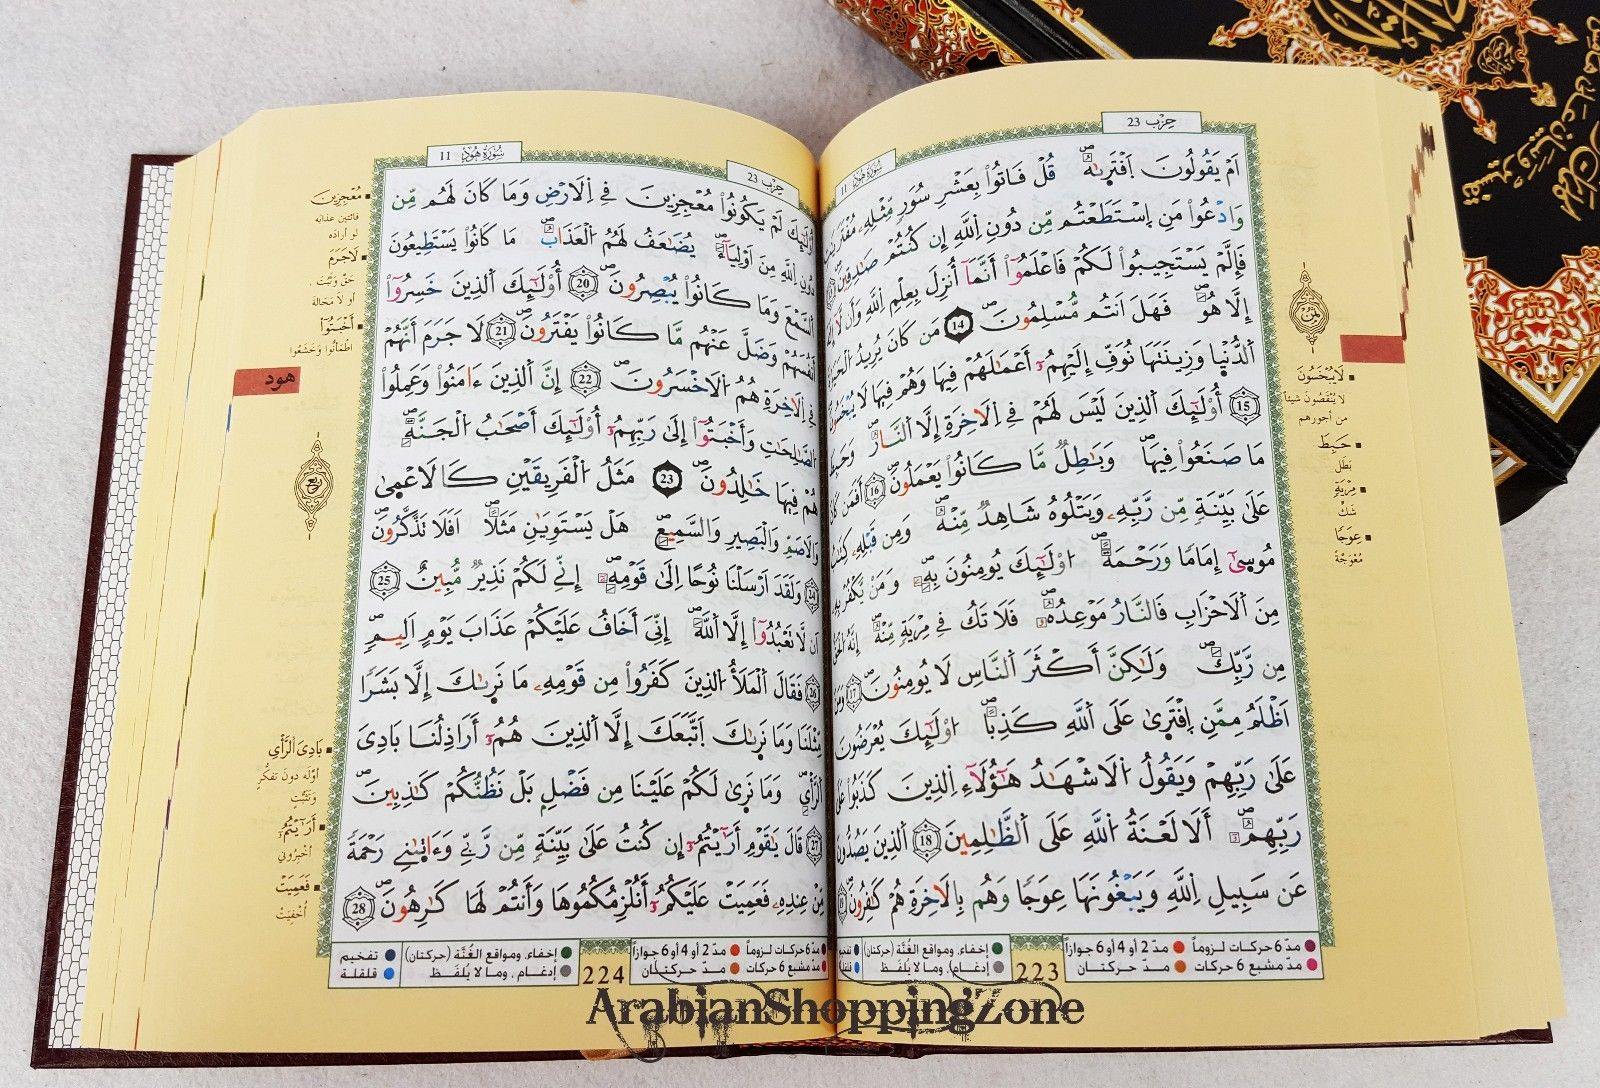 حِزْب 23
أَمْ يَقُولُونَ اَفْتَرىٰهُ قُلْ فَاتُواْ بِعَشْرِ سُوَرٖ مِّثْلِهِۦ
وَادْعُواْ مَنِ اِسْتَطَعْتُم مِّن دُونِ اِللَّهِ إِن كُنتُمْ صَٰدِقِينَ
فَإِلَّمْ يَسْتَجِيبُواْ لَكُمْ فَاعْلَمُوٓاْ أَنَّمَآ أُنزِلَ بِعِلْمِ اِللَّهِ وَأَن لَّآ
إِلَٰهَ إِلَّا هُوَ فَهَلَ اَنتُم مُّسْلِمُونَ 14 مَن كَانَ يُرِيدُ
اَلدُّنْيٰا وَزِينَتَهَا نُوَفِّ إِلَيْهِمُۥٓ أَعْمَٰلَهُمْ فِيهَا وَهُمْ فِيهَا لَا يُبْخَسُونَ
15 أُوْلَٰٓئِكَ اَلذِينَ لَيْسَ لَهُمْ فِي اِلَاخِرَةِ إِلَّا اَلنَّارُ وَحَبِطَ
مَا صَنَعُواْ فِيهَا وَبَٰطِلٞ مَّا كَانُواْ يَعْمَلُونَ 16 أَفَمَن كَانَ
عَلَىٰ بَيِّنَةٖ مِّن رَّبِّهِۦ وَيَتْلُوهُ شَاهِدٞ مِّنْهُ وَمِن قَبْلِهِۦ كِتَٰبُ
مُوسىٰٓ إِمَامٗا وَرَحْمَةً اُوْلَٰٓئِكَ يُومِنُونَ بِهِۦ وَمَنْ يَّكْفُرْ بِهِۦ
مِنَ اَلَاحْزَابِ فَالنَّارُ مَوْعِدُهُۥ فَلَا تَكُ فِي مِرْيَةٖ مِّنْهُ إِنَّهُ اُلْحَقُّ
مِن رَّبِّكَ وَلَٰكِنَّ أَكْثَرَ اَلنَّاسِ لَا يُومِنُونَ 17 وَمَنَ
اَظْلَمُ مِمَّنِ اِفْتَرىٰ عَلَى اَللَّهِ كَذِباً اُوْلَٰٓئِكَ يُعْرَضُونَ
عَلَىٰ رَبِّهِمْ وَيَقُولُ اُلَاشْهَٰدُ هَٰٓؤُلَآءِ اِلذِينَ كَذَبُواْ عَلَىٰ
رَبِّهِمُۥٓ أَلَا لَعْنَةُ اُللَّهِ عَلَى اَلظَّٰلِمِينَ 18 اَلذِينَ يَصُدُّونَ
عَن سَبِيلِ اِللَّهِ وَيَبْغُونَهَا عِوَجٗا وَهُم بِالَاخِرَةِ هُمْ كَٰفِرُونَ
لَا يُبْخَسُونَ
لا يُنْقَصُونَ شيئاً
من أجورهم
حَبِطَ
بَطَل
مِرْيَةٖ
شَكّ
عِوَجٗا
مُعْوَجَّة
ثمن
مدّ 6 حركات لزوماً
مدّ 2 أو 4 أو 6 جوازاً
إخفاء، ومواقع الغُنَّة (حركتان)
مدّ مشبع 6 حركات
مدّ حركتان
إدغام، وما لا يُلفَظ
223
سُورَةُ هُود 11
حِزْب 23
أُوْلَٰٓئِكَ لَمْ يَكُونُواْ مُعْجِزِينَ فِي اِلَارْضِ وَمَا كَانَ لَهُم مِّن
دُونِ اِللَّهِ مِنَ اَوْلِيَآءَ يُضَٰعَفُ لَهُمُ اُلْعَذَابُ مَا كَانُواْ يَسْتَطِيعُونَ
اَلسَّمْعَ وَمَا كَانُواْ يُبْصِرُونَ 20 أُوْلَٰٓئِكَ اَلذِينَ خَسِرُوٓاْ
أَنفُسَهُمْ وَضَلَّ عَنْهُم مَّا كَانُواْ يَفْتَرُونَ 21 لَا جَرَمَ أَنَّهُمْ
فِي اِلَاخِرَةِ هُمُ اُلَاخْسَرُونَ 22 إِنَّ اَلذِينَ ءَامَنُواْ وَعَمِلُواْ
اُلصَّٰلِحَٰتِ وَأَخْبَتُوٓاْ إِلَىٰ رَبِّهِمُۥٓ أُوْلَٰٓئِكَ أَصْحَٰبُ اُلْجَنَّةِ
هُمْ فِيهَا خَٰلِدُونَ 23 مَثَلُ اُلْفَرِيقَيْنِ كَالَاعْمىٰ
وَالَاصَمِّ وَالْبَصِيرِ وَالسَّمِيعِ هَلْ يَسْتَوِيَٰنِ مَثَلًا اَفَلَا تَذَّكَّرُونَ
24 وَلَقَدَ اَرْسَلْنَا نُوحًا اِلَىٰ قَوْمِهِۦٓ إِنِّي لَكُمْ نَذِيرٞ مُّبِينٌ 25
اَن لَّا تَعْبُدُوٓاْ إِلَّا اَللَّهَ إِنِّيَ أَخَافُ عَلَيْكُمْ عَذَابَ يَوْمٍ اَلِيمٖ
26 فَقَالَ اَلْمَلَأُ اُلذِينَ كَفَرُواْ مِن قَوْمِهِۦ مَا نَرىٰكَ إِلَّا بَشَرٗا
مِّثْلَنَا وَمَا نَرىٰكَ اَتَّبَعَكَ إِلَّا اَلذِينَ هُمُۥٓ أَرَاذِلُنَا بَادِيَ
اَلرَّأْيِ وَمَا نَرىٰ لَكُمْ عَلَيْنَا مِن فَضْلِۭ بَلْ نَظُنُّكُمْ كَٰذِبِينَ
27 قَالَ يَٰقَوْمِ أَرَٰٓيْتُمُۥٓ إِن كُنتُ عَلَىٰ بَيِّنَةٖ مِّن رَّبِّي وَءَاتىٰنِي رَحْمَةٗ
مِّنْ عِندِهِۦ فَعَمِيَتْ عَلَيْكُمُۥٓ أَنُلْزِمُكُمُوهَا وَأَنتُمْ لَهَا كَٰرِهُونَ 28
مُعْجِزِينَ
فائتين عذابَه
لو أراده
لَا جَرَمَ
حَقَّ وَثَبَتَ،
أو لا مَحَالة
أَخْبَتُوٓاْ
اطْمَأنُّوا وَخَشَعُوا
هود
ربع
بَادِيَ اَلرَّأْيِ
أوَّلَه دونَ تفكُّرٍ
وَتَثَبُّتٍ
أَرَٰٓيْتُمُۥٓ
أخْبِرُوني
فَعَمِيَتْ
أُخْفِيَتْ
مدّ 6 حركات لزوماً
مدّ 2 أو 4 أو 6 جوازاً
إخفاء، ومواقع الغُنَّة (حركتان)
تفخيم
مدّ مشبع 6 حركات
مدّ حركتان
إدغام، وما لا يُلفَظ
قلقلة
224
ArabianShoppingZone